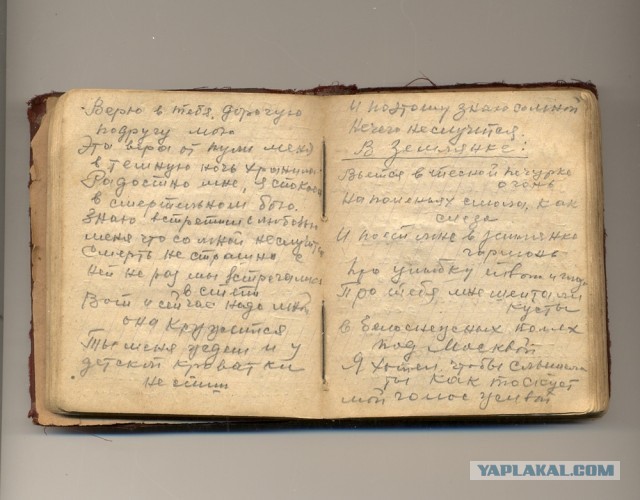 Верю в тебя дорогую
подругу мою
Эта вера от пули меня
в темную ночь хранила
Радостно мне, я спокоен
в смертельном бою.
Знаю встретиш с любовью
меня что со мной не случится
Смерть не страшна с
ней не раз мы встречались
в степи
Вот и сейчас надо мною
она кружится
Ты меня ждеш и у
детской кроватки
не спиш
И поэтому знаю со мной
нечего неслучится.
В Землянке:
Вьется в тесной печурке
огонь
На поленьях смола, как
слеза
И поет мне в землянке
гармонь
Про улыбку твою и глаза
Про тебя мне шептали
кусты
в белоснежных полях
под Москвой
Я хотел, чтобы слышала
ты как тоскует
мой голос живой
YAPLAKAL.COM